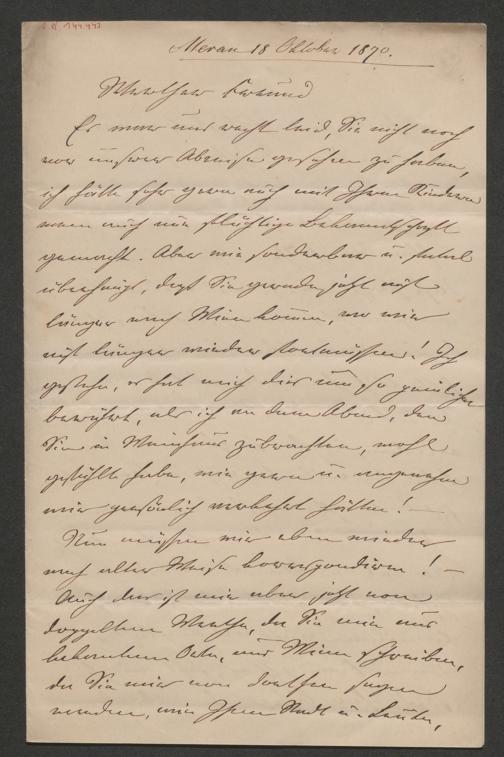 Meran 18 Oktober 1890.
Werther Freund
Es war uns recht leid, Sie nicht noch
vor unserer Abreise gesehen zu haben,
ich hätte sehr gern auch mit Ihren Kindern
wenn auch nur flüchtige Bekanntschaft
gemacht. Aber wie sonderbar u. fatal
überhaupt, daß Sie gerade jetzt auf
länger nach Wien kamen, wo wir
auf länger wieder fortmüssen! Ich
gestehe, es hat mich dies um so peinlicher
berührt, als ich an dem Abend, den
Sie in Weinhaus zubrachten, wohl
gefühlt habe, wie gern u. angenehm
wir persönlich verkehrt hätten! —
Nun müssen wir eben wieder
nach alter Weise korrespondiren! —
Auch das ist mir aber jetzt von
doppeltem Werthe, da Sie mir aus
bekanntem Orte, aus Wien schreiben,
da Sie mir von dorther sagen
werden, wie Ihnen Stadt u. Leute,